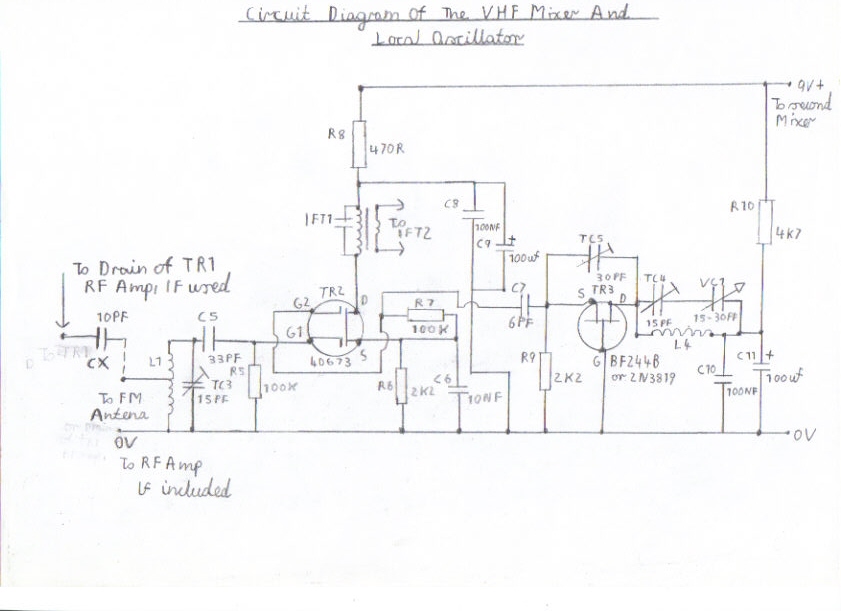 Circuit Diagram Of The VHF Mixer And
Local Oscillator
9V+
To second
Mixer
R8
470R
R10
4K7
IFT1
To
IFT2
C8
100NF
C9
+
100uf
TC5
30PF
TR3
S
D
TC4
15PF
VC1
15-30PF
L4
To Drain of TR1
RF Amp, IF used
10PF
CX
TR2
G2
D
G1
S
40673
R7
100K
C7
6PF
C5
33PF
L1
TC3
15PF
R5
100K
R6
2K2
C6
10NF
R9
2K2
G
BF244B
or 2N3819
C10
100NF
C11
+
100uf
To FM
Antena
0V
0V
To RF Amp
IF included